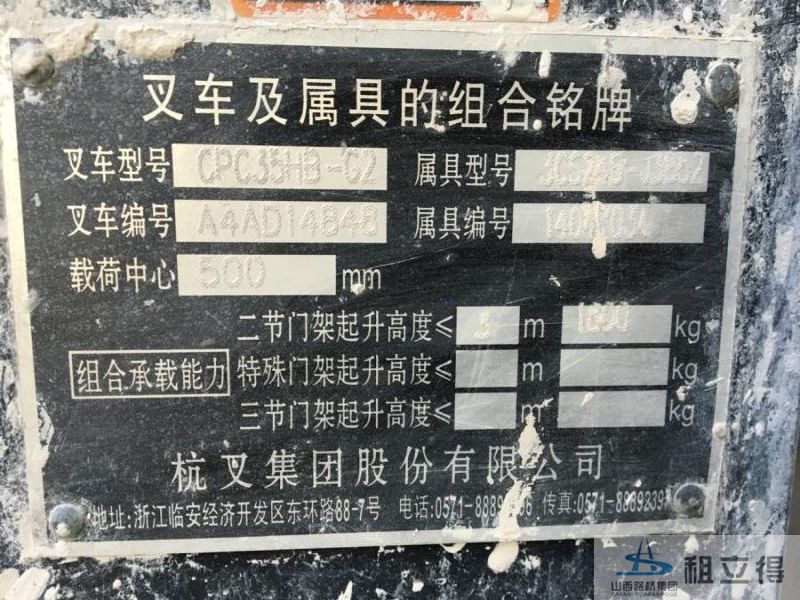 叉车及属具的组合铭牌
叉车型号 CPC35HB-G2 属具型号
叉车编号 A4AD14848 属具编号
载荷中心 500 mm
二节门架起升高度≤ 3 m 1600 kg
组合承载能力 特殊门架起升高度≤ m kg
三节门架起升高度≤ m kg
杭叉集团股份有限公司
地址:浙江临安经济开发区东环路88-7号 电话:0571- 传真:0571-
山西路桥集团 租立得